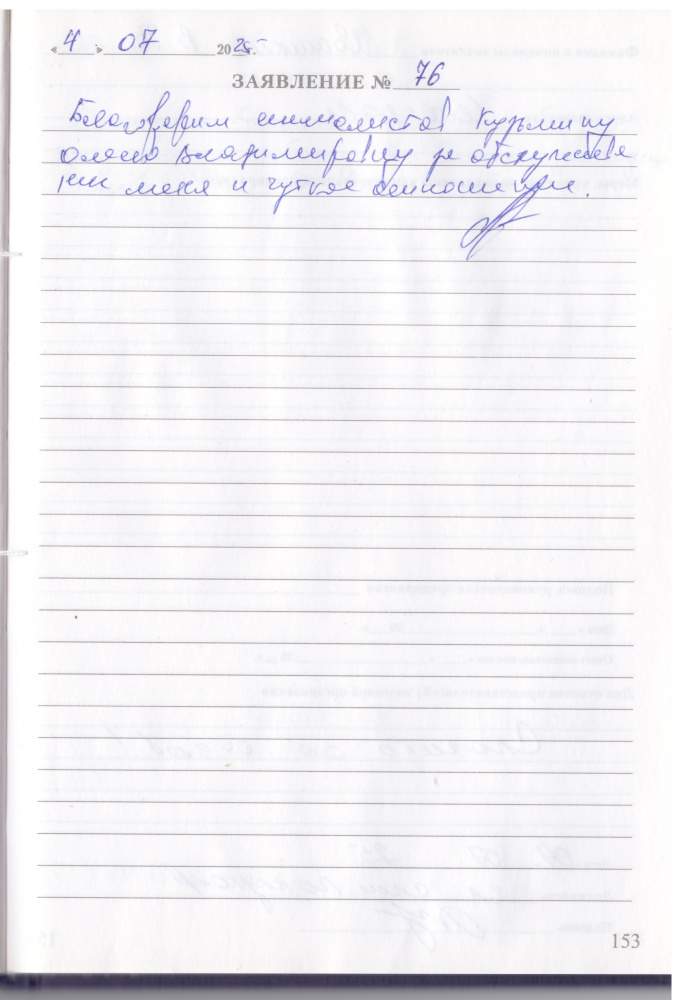 «4» 07 2025г.
ЗАЯВЛЕНИЕ № 76
Благодарим специалиста Кузьмину
Олесю Владимировну за обслужива
ние меня и чуткое отношение.
153